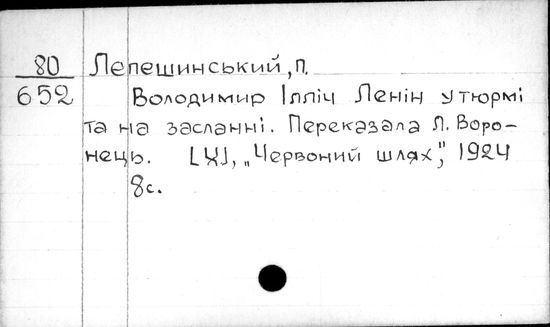 80 Лепешинський, П.
652 Володимир Ілліч Ленін у тюрмі
та на засланні. Переказала Л. Воро-
нець. [Х], „Червоний шлях", 1924
8с.